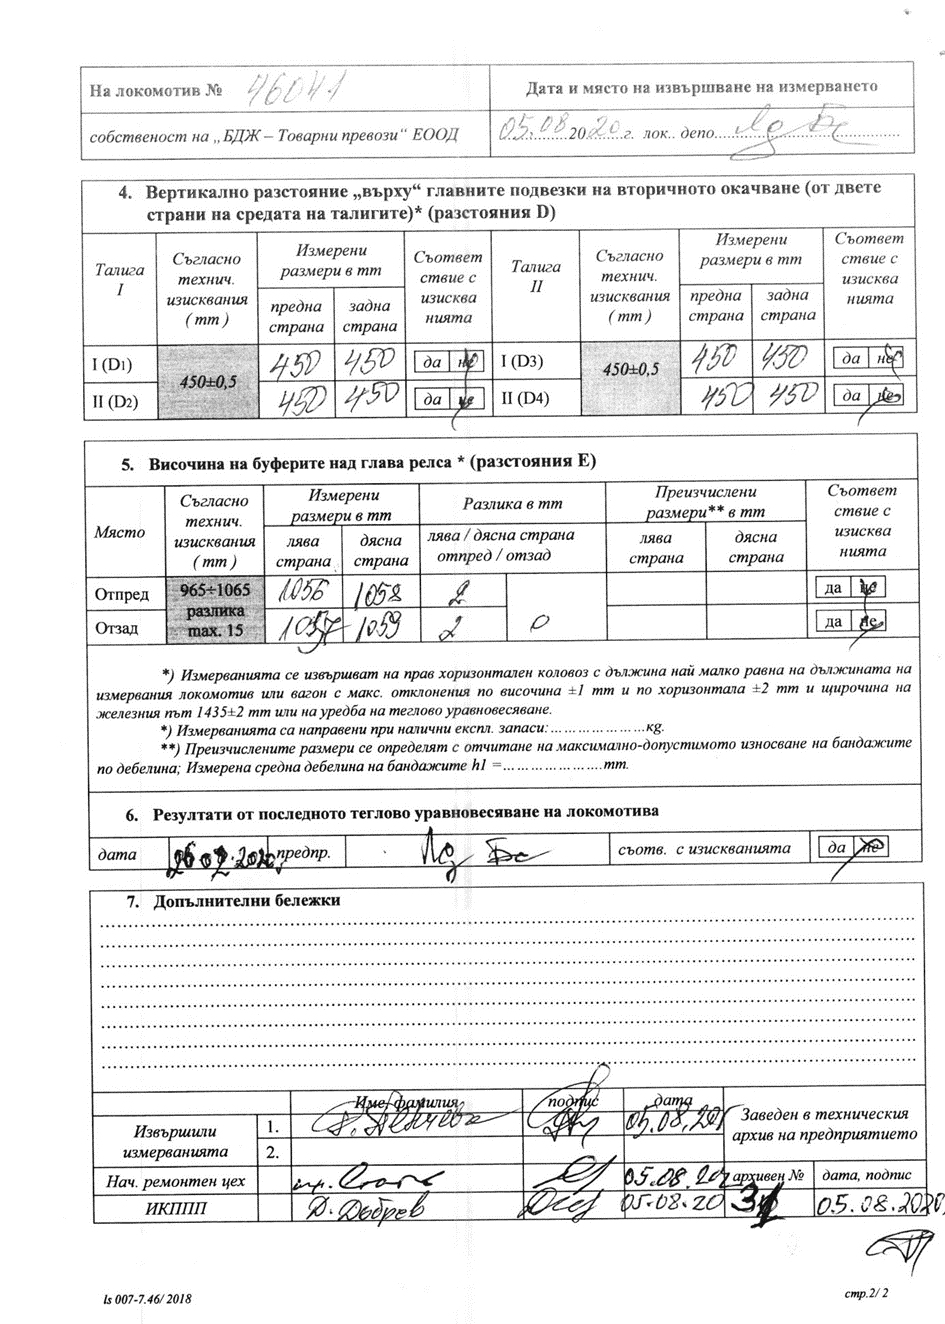 На локомотив № 46041
Дата и място на извършване на измерването
собственост на „ БДЖ – Товарни превози“ ЕООД
05.08.2020 г. лок.. депо
4. Вертикално разстояние „върху“ главните подвезки на вторичното окачване (от двете
страни на средата на талигите)* (разстояния D)
Талига I
Съгласно технич. изисквания ( mm )
Измерени размери в mm
предна страна
задна страна
Съответ ствие с изисква нията
Талига II
Съгласно технич. изисквания ( mm )
Измерени размери в mm
предна страна
задна страна
Съответ ствие с изисква нията
I (D1) 450±0,5 450 450 да не I (D3) 450±0,5 450 450 да не
II (D2) 450 450 да не II (D4) 450 450 да не
5. Височина на буферите над глава релса * (разстояния E)
Място
Съгласно технич. изисквания ( mm )
Измерени размери в mm
лява страна
дясна страна
Разлика в mm
лява / дясна страна
отпред / отзад
Преизчислени размери** в mm
лява страна
дясна страна
Съответ ствие с изисква нията
Отпред 965÷1065 1056 1058 2 да не
разлика
Отзад max. 15 1057 1059 2 0 да не
*) Измерванията се извършват на прав хоризонтален коловоз с дължина най малко равна на дължината на
измервания локомотив или вагон с макс. отклонения по височина ±1 mm и по хоризонтала ±2 mm и щирочина на
железния път 1435±2 mm или на уредба на теглово уравновесяване.
*) Измерванията са направени при налични експл. запаси:…………………kg.
**) Преизчислените размери се определят с отчитане на максимално-допустимото износване на бандажите
по дебелина; Измерена средна дебелина на бандажите h1 =………………….mm.
6. Резултати от последното теглово уравновесяване на локомотива
дата предпр. съотв. с изискванията да не
7. Допълнителни бележки
Име фамилия подпис дата
Заведен в техническия
архив на предприятието
Извършили измерванията
1. 05.08.20
2.
Нач. ремонтен цех 05.08.20 архивен № дата, подпис
ИКППП Д. Добрев 05.08.20 05.08.2020
ls 007-7.46/ 2018
стр.2/ 2